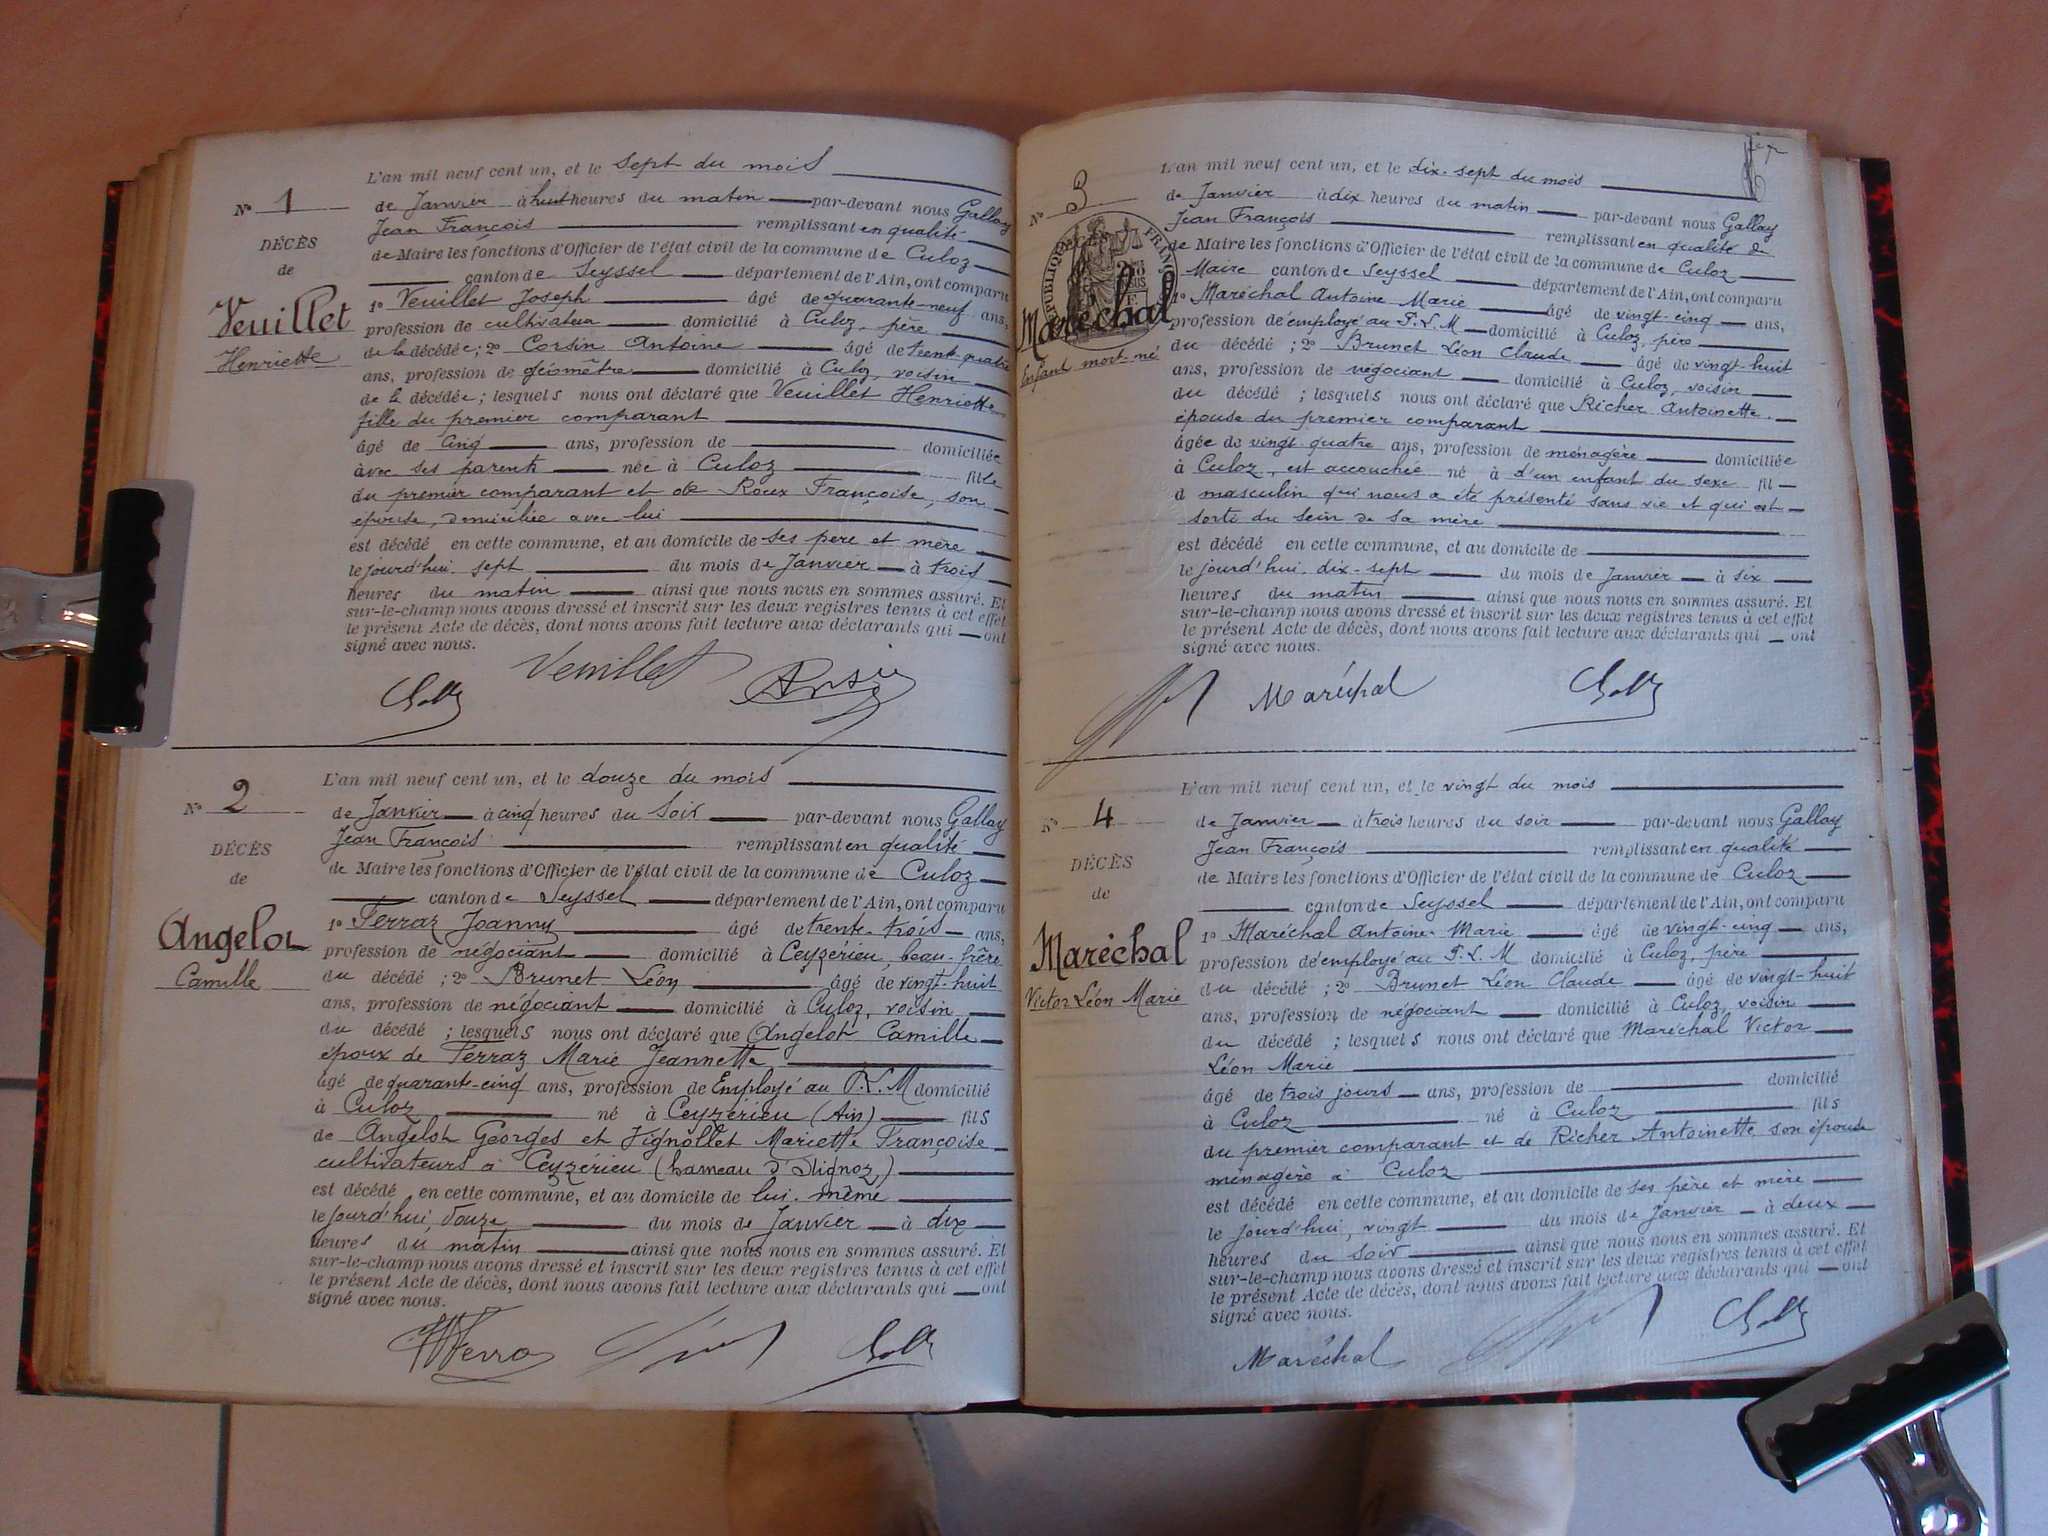 L'an mil neuf cent un, et le sept du mois
N° 1
de Janvier à huit heures du matin par-devant nous Gallay
Jean François remplissant en qualité
DÉCÈS
de Maire les fonctions d'Officier de l'état civil de la commune de Culoz
de
canton de Seyssel département de l'Ain, ont comparu
Veuillet
Henriette
1° Veuillet Joseph âgé de quarante-neuf ans,
profession de cultivateur domicilié à Culoz, père
de la décédée ; 2° Corsin Antoine âgé de trente-quatre
ans, profession de géomètre domicilié à Culoz, voisin
de la décédée ; lesquels nous ont déclaré que Veuillet Henriette
fille du premier comparant
âgé de cinq ans, profession de domiciliée
avec ses parents née à Culoz fille
du premier comparant et de Roux Françoise, son
épouse, domiciliée avec lui
est décédé en cette commune, et au domicile de ses père et mère
le jourd'hui sept du mois de Janvier à trois
heures du matin ainsi que nous nous en sommes assuré. Et
sur-le-champ nous avons dressé et inscrit sur les deux registres tenus à cet effet
le présent Acte de décès, dont nous avons fait lecture aux déclarants qui ont
signé avec nous.
Veuillet
L'an mil neuf cent un, et le douze du mois
N° 2
de Janvier à cinq heures du soir par-devant nous Gallay
Jean François remplissant en qualité
DÉCÈS
de Maire les fonctions d'Officier de l'état civil de la commune de Culoz
de
canton de Seyssel département de l'Ain, ont comparu
Angelot
Camille
1° Ferraz Joanny âgé de trente-trois ans,
profession de négociant domicilié à Ceyzérieu, beau-frère
du décédé ; 2° Brunet Léon âgé de vingt-huit
ans, profession de négociant domicilié à Culoz, voisin
du décédé ; lesquels nous ont déclaré que Angelot Camille
époux de Ferraz Marie Jeannette
âgé de quarante-cinq ans, profession de Employé au P.L.M domicilié
à Culoz né à Ceyzérieu (Ain) fils
de Angelot Georges et Vignollet Mariette Françoise
cultivateurs à Ceyzérieu (hameau d'
est décédé en cette commune, et au domicile de lui-même
le jourd'hui, douze du mois de Janvier à dix
heures du matin ainsi que nous nous en sommes assuré. Et
sur-le-champ nous avons dressé et inscrit sur les deux registres tenus à cet effet
le présent Acte de décès, dont nous avons fait lecture aux déclarants qui ont
signé avec nous.
L'an mil neuf cent un, et le dix-sept du mois
N° 3
de Janvier à dix heures du matin par-devant nous Gallay
Jean François remplissant en qualité de
de Maire les fonctions d'Officier de l'état civil de la commune de Culoz
Maire canton de Seyssel département de l'Ain, ont comparu
Maréchal
Enfant mort-né
1° Maréchal Antoine Marie âgé de vingt-cinq ans,
profession d'employé au P.L.M domicilié à Culoz, père
du décédé ; 2° Brunet Léon Claude âgé de vingt-huit
ans, profession de négociant domicilié à Culoz, voisin
du décédé ; lesquels nous ont déclaré que Richer Antoinette
épouse du premier comparant
âgée de vingt-quatre ans, profession de ménagère domiciliée
à Culoz, est accouchée né à d'un enfant du sexe fil
d masculin qui nous a été présenté sans vie et qui est
sorti du sein de sa mère
est décédé en cette commune, et au domicile de
le jourd'hui dix-sept du mois de Janvier à six
heures du matin ainsi que nous nous en sommes assuré. Et
sur-le-champ nous avons dressé et inscrit sur les deux registres tenus à cet effet
le présent Acte de décès, dont nous avons fait lecture aux déclarants qui ont
signé avec nous.
Maréchal
L'an mil neuf cent un, et le vingt du mois
N° 4
de Janvier à trois heures du soir par-devant nous Gallay
Jean François remplissant en qualité
DÉCÈS
de Maire les fonctions d'Officier de l'état civil de la commune de Culoz
de
canton de Seyssel département de l'Ain, ont comparu
Maréchal
Victor Léon Marie
1° Maréchal Antoine Marie âgé de vingt-cinq ans,
profession d'employé au P.L.M domicilié à Culoz, père
du décédé ; 2° Brunet Léon Claude âgé de vingt-huit
ans, profession de négociant domicilié à Culoz, voisin
du décédé ; lesquels nous ont déclaré que Maréchal Victor
Léon Marie
âgé de trois jours ans, profession de domicilié
à Culoz né à Culoz fils
du premier comparant et de Richer Antoinette son épouse
ménagère à Culoz
est décédé en cette commune, et au domicile de ses père et mère
le jourd'hui, vingt du mois de Janvier à deux
heures du soir ainsi que nous nous en sommes assuré. Et
sur-le-champ nous avons dressé et inscrit sur les deux registres tenus à cet effet
le présent Acte de décès, dont nous avons fait lecture aux déclarants qui ont
signé avec nous.
Maréchal